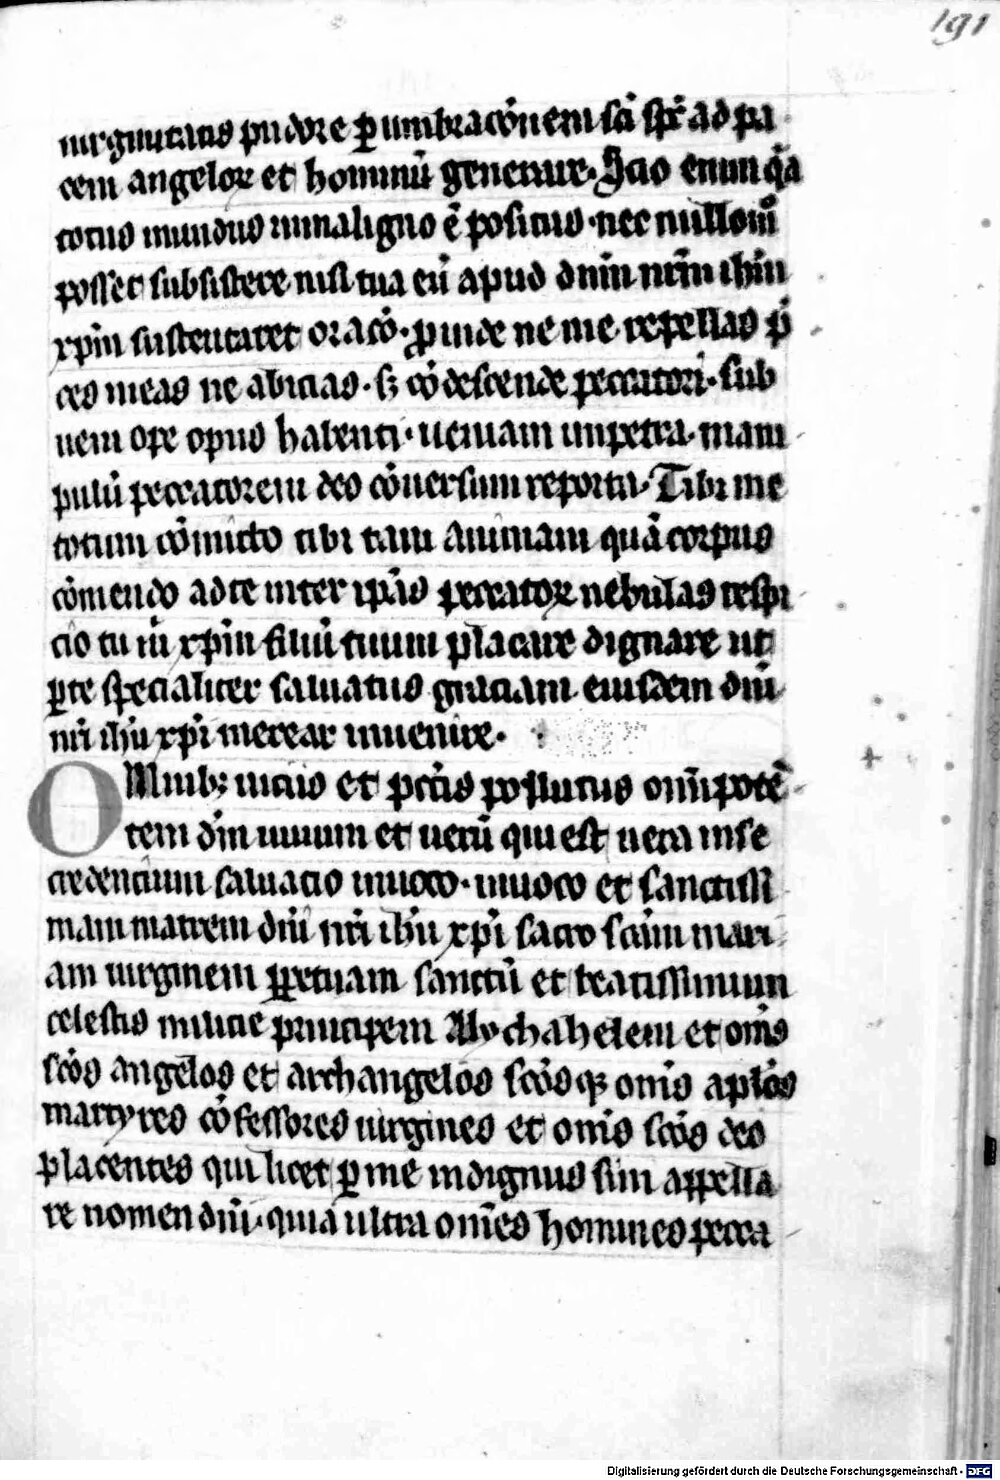 191
uirginitatis pudore ꝑ umbracōnem sci sp̄r ad pa
cem angeloꝝ et hominū genetrix. Scio enim qa
totus mundus inmaligno ē positus. nec nullom̄
posset subsistere nisi tua eū apud dn̄m nr̄m ihm
xp̄m sustentaret oracō. ꝓinde ne me repellas p̄
ces meas ne abicias. sꝫ cōdescende peccatori. sub
ueni ope opus habenti. ueniam inpetra. mani
pulū peccatorem deo cōuersum reporta. Tibi me
totum cōmitto tibi tam animam quā corpus
cōmendo ad te inter ip̄as peccatoꝝ nebulas respi
cio tu m̄ xp̄m filiū tuum placare dignare ut
ꝑ te specialiter saluatus graciam eiusdem dn̄i
nr̄i ihū xp̄i merear inuenire.
OMnibꝫ uiciis et pctīs pollutus om̄ipotē
tem dm̄ uiuum et uerū qui est uera in se
credencium saluacio inuoco. inuoco et sanctissi
mam matrem dn̄i nr̄i ihū xp̄i sacro scām mari
am uirginem ꝑpetuam sanctū et beatissimum
celestis milicie principem Mychahelem et om̄s
scōs angelos et archangelos scōsqꝫ om̄s aplōs
martyres cōfessores uirgines et om̄s scōs deo
placentes qui licet ꝑ me indignus sim appella
re nomen dn̄i. quia ultra om̄es homines pecca
Digitalisierung gefördert durch die Deutsche Forschungsgemeinschaft - DFG